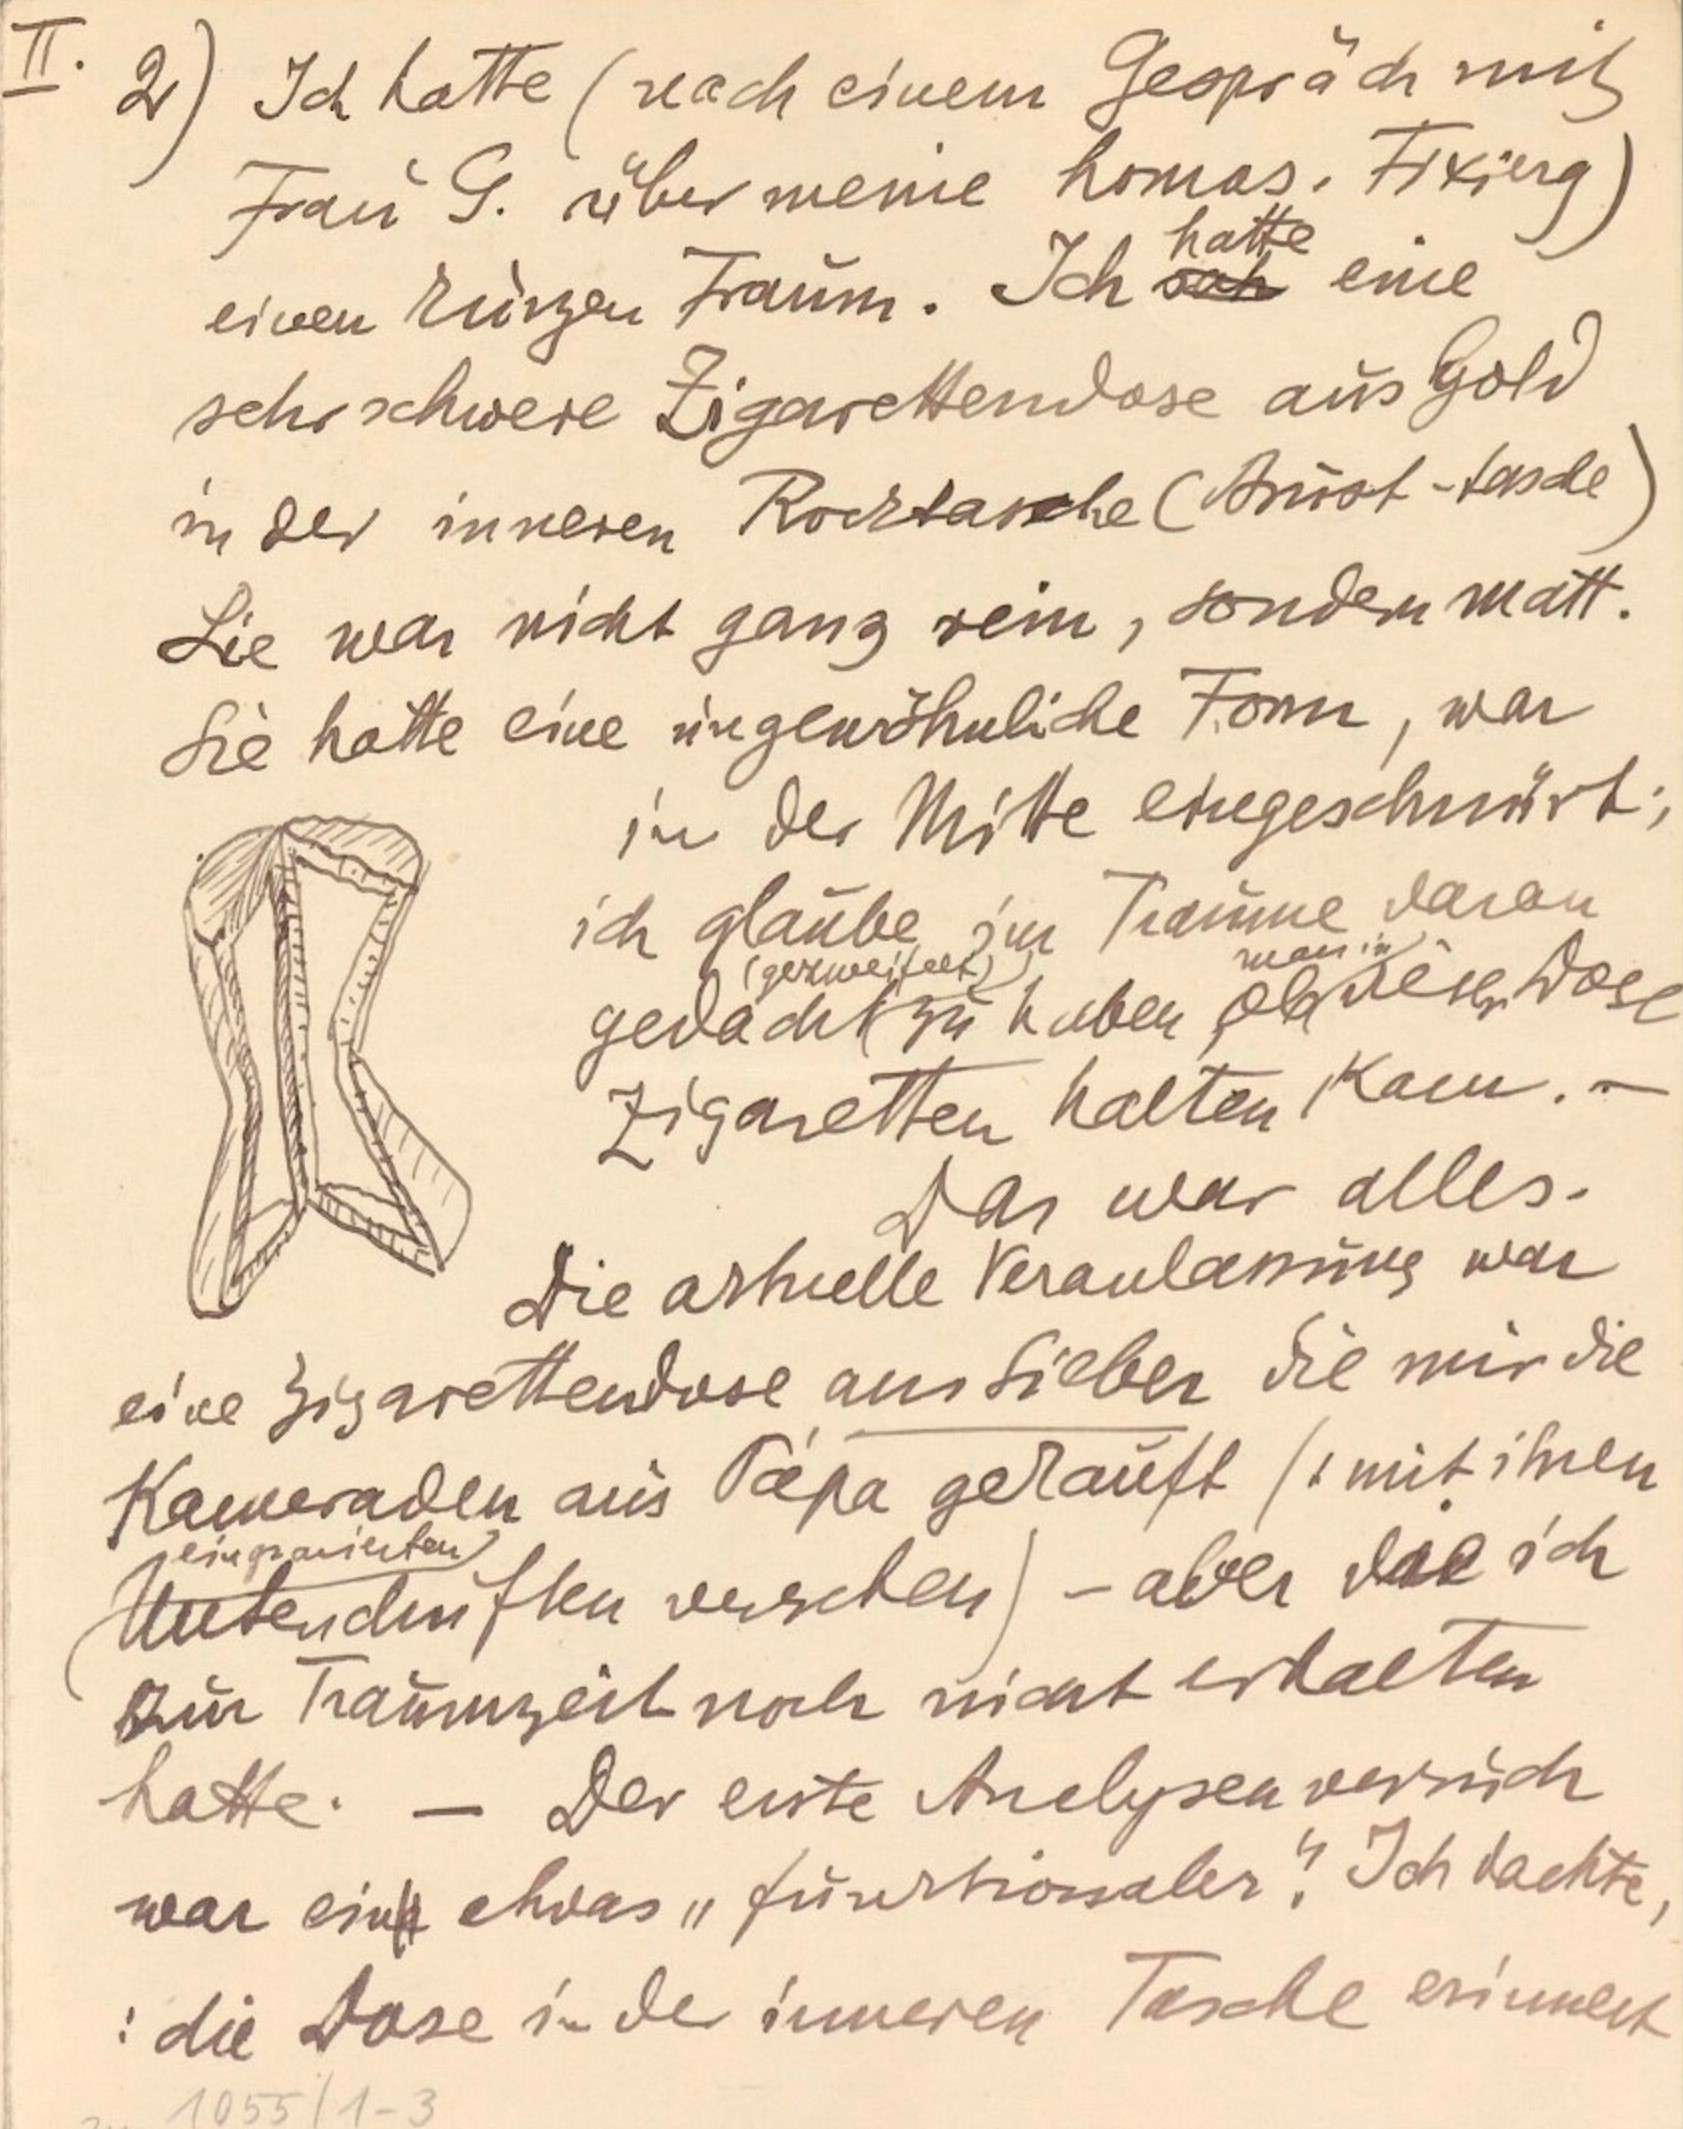 II. 2) Ich hatte (nach einem Gespräch mit
Frau G. über meine homos. Fixierg)
einen kurzen Traum. Ich sah hatte eine
sehr schwere Zigarettendose aus Gold
in der inneren Rocktasche (Brust-tasche)
Sie war nicht ganz rein, sondern matt.
Sie hatte eine ungewöhnliche Form, war
in der Mitte eingeschnürt;
ich glaube im Traume daran
gedacht (gezweifelt) zu haben, ob man in dieser Dose
Zigaretten halten kann. –
Das war alles.
Die aktuelle Veranlassung war
eine Zigarettendose aus Silber die mir die
Kameraden aus Pápa gekauft (: mit ihren
eingravierten
Unterschriften versehen) – aber die ich
zur Traumzeit noch nicht erhalten
hatte. — Der erste Analysenversuch
war ein etwas „funktionaler". Ich dachte,
: die Dose in der inneren Tasche erinnert
1055/1-3